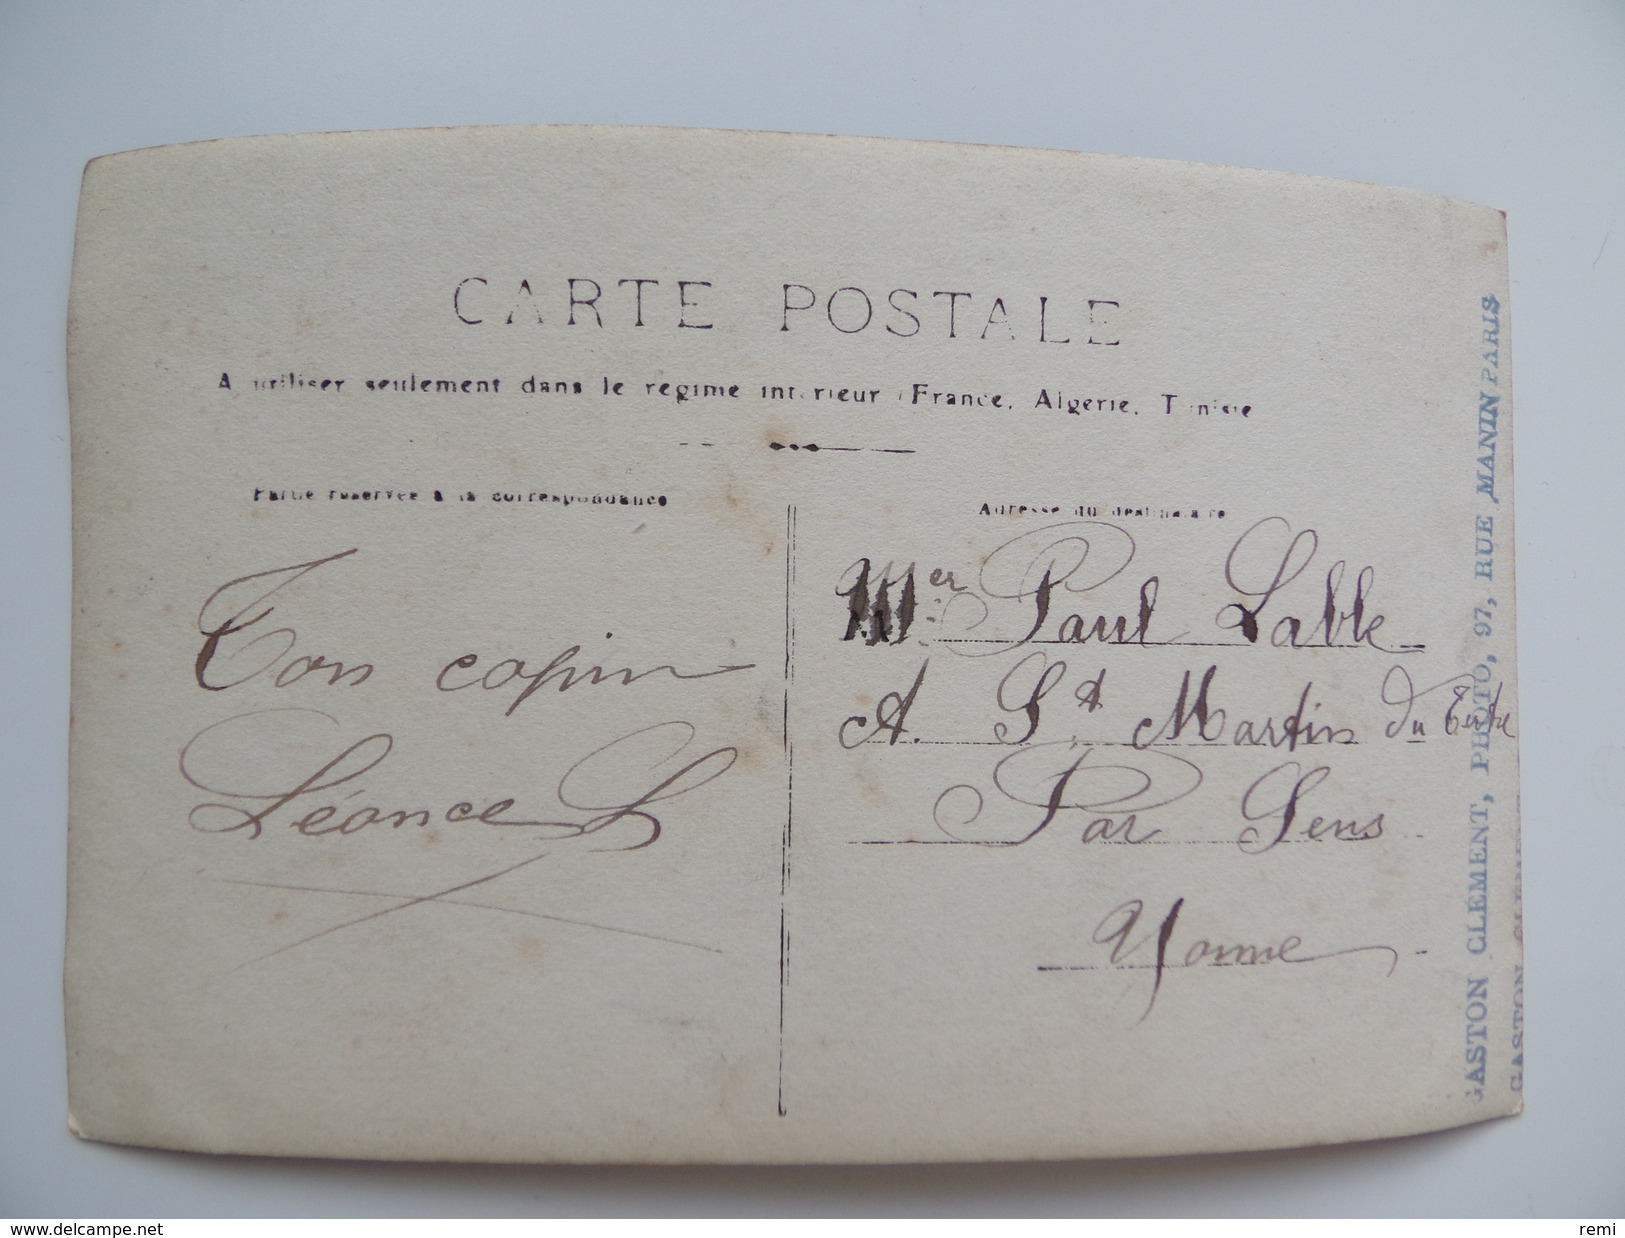 CARTE POSTALE
A utiliser seulement dans le régime intérieur (France, Algérie, Tunisie
Partie réservée à la correspondance
Adresse du destinataire
Ton copin
Léonce L
Mer Paul Lable
A. St Martin du Tertre
Par Sens
Yonne
GASTON CLEMENT, PHOTO, 97, RUE MANIN PARIS
GASTON CLEMENT
© www.delcampe.net
remi